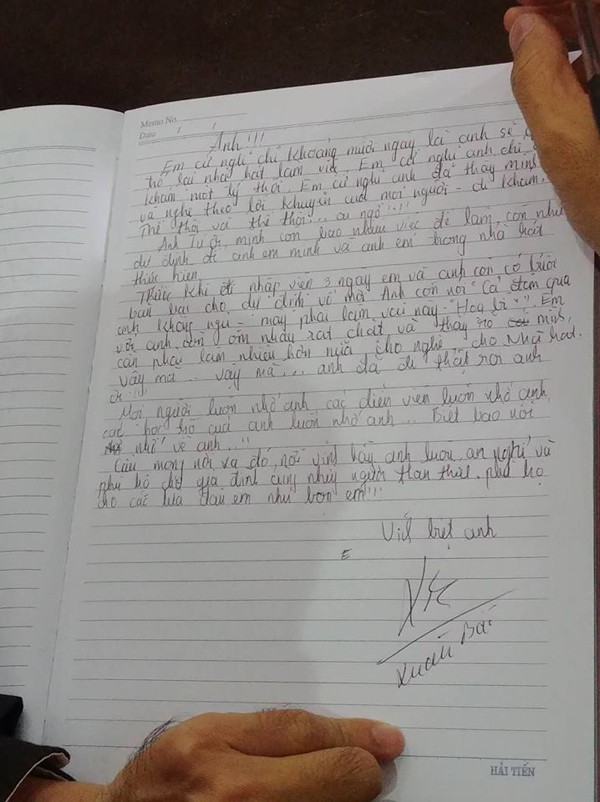 Memo No.
Date / /
Anh!!!
Em cứ nghĩ chỉ khoảng mười ngày là anh sẽ
trở lại nhà hát làm việc. Em cứ nghĩ anh chỉ
khám một tý thôi. Em cứ nghĩ anh đã thấy mình
và nghe theo lời khuyên của mọi người - đi khám.
Thế thôi và thế thôi... ai ngờ!...!!
Anh Tú ơi, mình còn bao nhiêu việc để làm, còn nhiều
dự định để anh em mình và anh em trong nhà hát
thực hiện.
Trước khi đi nhập viện 3 ngày em và anh còn có buổi
bàn bạc cho dự định vở mới. Anh còn nói "Cả đêm qua
anh không ngủ - mày phải làm vai này - "Hoạ sĩ". Em
với anh còn ôm nhau rất chặt và thấy rõ mình,
cần phải làm nhiều hơn nữa cho nghề, cho Nhà hát.
Vậy mà... vậy mà... anh đã đi thật rồi anh
ơi!!!
Mọi người luôn nhớ anh, các diễn viên luôn nhớ anh,
các học trò của anh luôn nhớ anh... Biết bao nỗi
nhớ về anh...!!
Cầu mong nơi xa đó, nơi vĩnh hằng anh luôn an nghỉ và
phù hộ cho gia đình cùng những người thân thiết, phù hộ
cho các lứa đàn em như bọn em!!!
Vĩnh biệt anh
E
Xuân Bắc
HẢI TIẾN